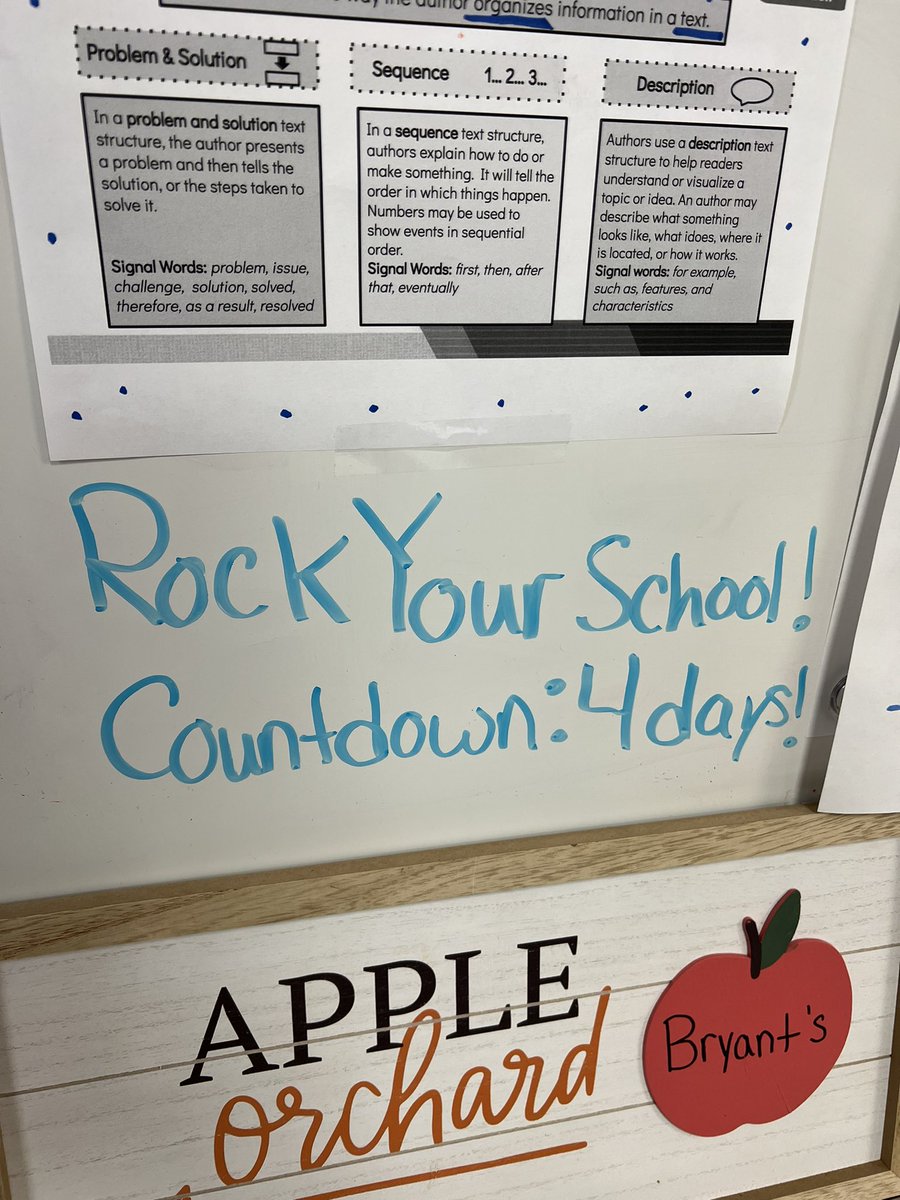 the author organizes information in a text.
Problem & Solution
In a problem and solution text
structure, the author presents
a problem and then tells the
solution, or the steps taken to
solve it.
Signal Words: problem, issue,
challenge, solution, solved,
therefore, as a result, resolved
Sequence 1... 2... 3...
In a sequence text structure,
authors explain how to do or
make something. It will tell the
order in which things happen.
Numbers may be used to
show events in sequential
order.
Signal Words: first, then, after
that, eventually
Description
Authors use a description text
structure to help readers
understand or visualize a
topic or idea. An author may
describe what something
looks like, what idoes, where it
is located, or how it works.
Signal words: for example,
such as, features, and
characteristics
Rock Your School!
Countdown: 4 days!
APPLE
orchard
Bryant's